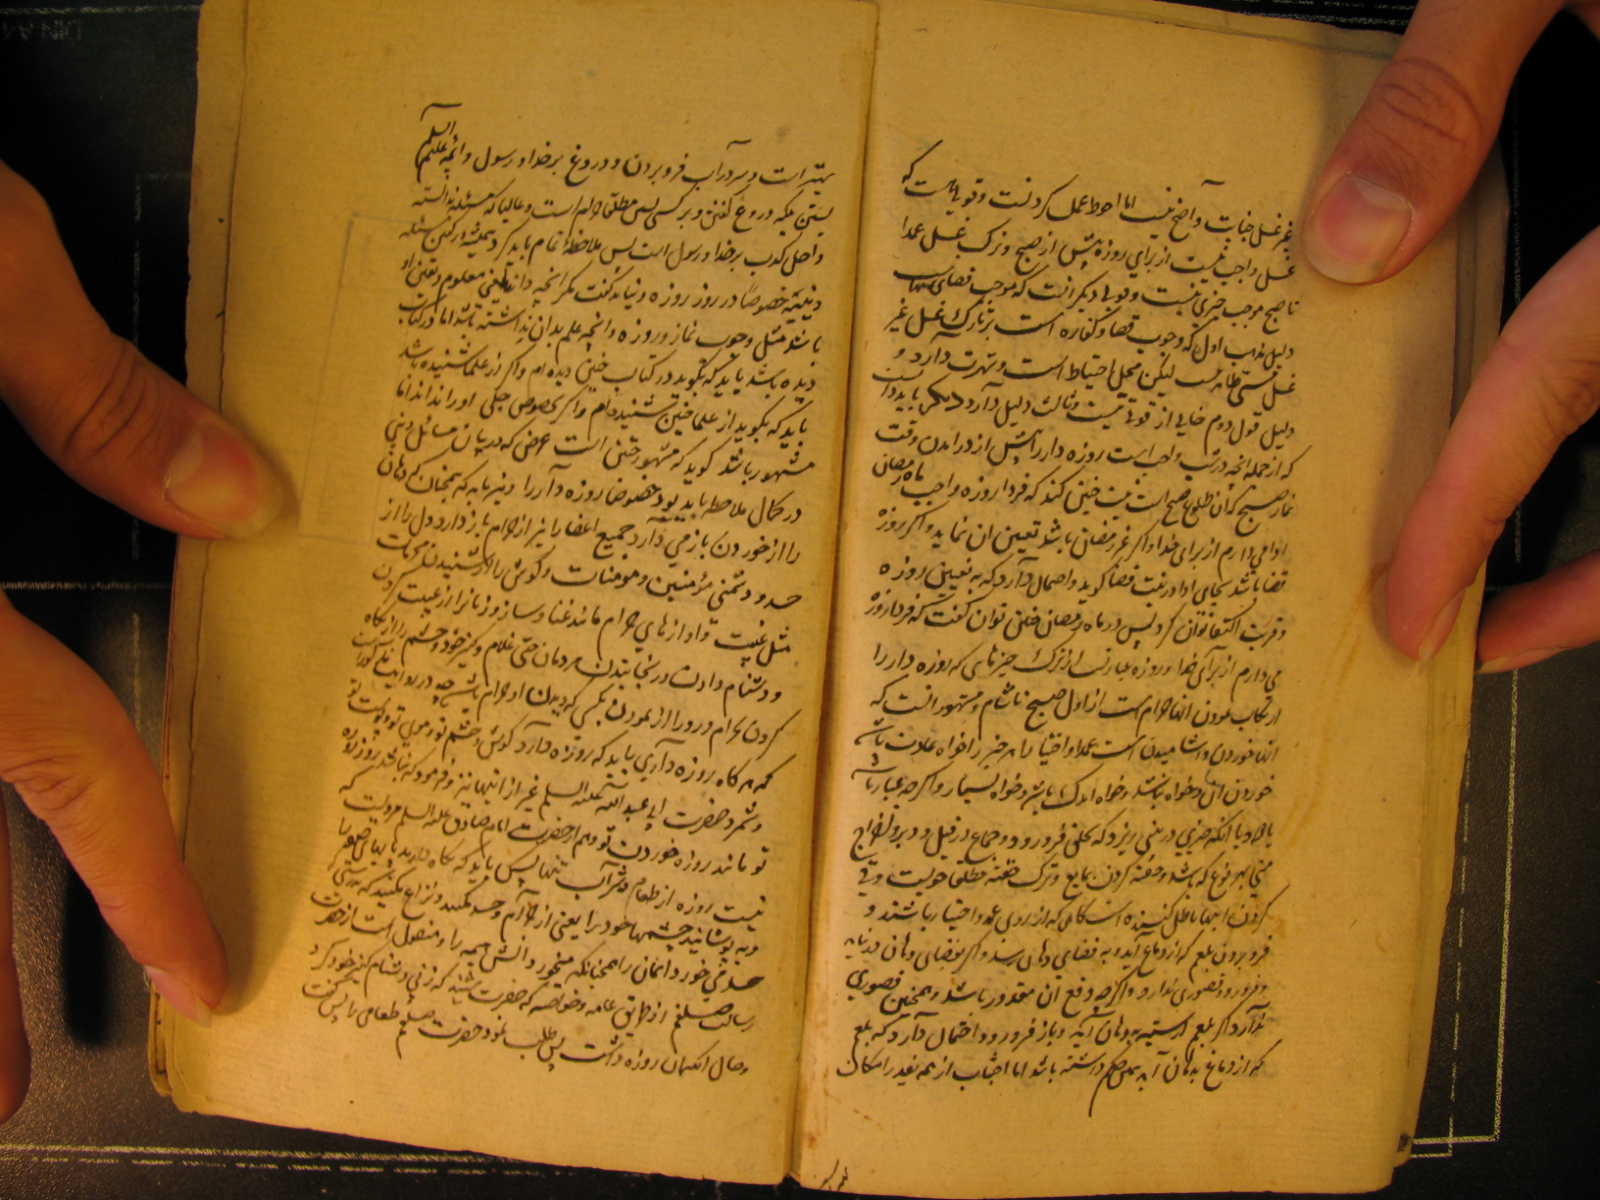 غیر غسل جنابت واضح نیست اما احوط عمل کردنست و قولی هست که
غسل واجب نیست از برای روزه پیش از صبح و ترک غسل عمدا
تا صبح موجب چیزی نیست و قولی دیگر آنست که موجب قضای
دلیل مذهب اول که وجوب قضا و کفاره است بر تارک غسل غیر
غسل لیکن محل احتیاط است و شهرت دارد و
دلیل قول دوم خالی از قوتی نیست و ثالث دلیل دارد دیگر باید دانست
که از جمله آنچه واجب است روزه دار را پیش از در آمدن وقت
نماز صبح که آن طلوع صبح است نیت چنین کند که فردا روزه واجب ماه رمضان
ادا می دارم از برای خدا و اگر غیر رمضان باشد تعیین آن نماید و اگر روزه
قضا باشد بجای ادا در نیت قضا گوید و احتمال دارد که به تعیین روزه
و قربت اکتفا توان کرد پس در ماه رمضان توان گفت که فردا روزه
می دارم از برای خدا و روزه عبارتست از ترک چیزهای که روزه دار را
ارتکاب نمودن آنها حرام است از اول صبح تا شام و مشهور آنست که
آنها خوردن و آشامیدن است عمدا و اختیارا هر چیز را خواه عادت باشد
خوردن آن و خواه نباشد و خواه اندک باشد و خواه بسیار و اگرچه غبار باشد
یا آنکه چیزی در بینی ریزد که بحلق فرو رود و جماع در قبل و دبر و اخراج
منی بهر نوع که باشد و حقنه کردن بمایع و ترک حقنه مطلقا و قی
کردن اینها باطل کننده است گاهی که از روی عمد و اختیار باشند و
فرو بردن بلغم که از دماغ آید و به فضای دهان رسد و اگر بفضای دهان در نیاید
و فرو رود قصوری ندارد و اگرچه دفع آن مقدور باشد و همچنین قصوری
ندارد اگر بلغم از سینه به دهان آید و باز فرو رود و احتمال دارد که بلغم
که از دماغ به دهان آید همین حکم داشته باشد اما اجتناب از همه بقدر امکان
است و سر در آب فرو بردن و دروغ بر خدا و رسول و ائمه علیهم السلم
بستن بلکه دروغ گفتن و بر کسی بستن مطلقا حرام است و غالبا که مسئله ندانسته
داخل کذب بر خدا و رسول است پس ملاحظه تمام باید کرد
دینیه خصوصا در روز روزه و نباید گفت مگر آنچه داند یعنی معلوم و یقینی او
باشد مثل وجوب نماز و روزه و آنچه علم بدان نداشته باشد اما در کتاب
دیده باشد باید که بگوید در کتاب چنین دیده ام و اگر از علما شنیده باشد
باید که بگوید از علما چنین شنیده ام و اگر بخصوص جلی او را نداند اما
مشهور باشد گوید که مشهور چنین است غرض که در بیان مسائل دینی
در کمال ملاحظه باید بود خصوصا روزه دار را و نیز باید که همچنان که دهان
را از خوردن باز می دارد جمیع اعضا را نیز از حرام باز دارد دل را از
حسد و دشمنی مؤمنین و مومنات و گوش را از شنیدن محرمات
مثل غیبت و آوازهای حرام مانند غنا و ساز و زبان را از غیبت کردن
و دشنام دادن و رنجانیدن مردمان حتی غلام و کنیز خود و چشم را از نگاه
کردن بحرام و رو را از نمودن بکسی که دیدن او حرام باشد چه در روایت مذکور است
که هر گاه روزه داری باید که روزه دارد گوش و چشم تو و موی تو و پوست تو
و شمرد حضرت ابی عبد الله علیه السلم غیر از اینها نیز و فرمود که نباشد روز روزه
تو مانند روز خوردن تو و هم از حضرت امام صادق علیه السلم مرویست که
نیست روزه از طعام و شراب تنها پس باید که نگاه دارید زبانهای خود را
و بپوشانید چشمها خود را یعنی از حرام و حسد مکنید و نزاع مکنید که
حسد می خورد ایمان را همچنانکه میخورد آتش هیمه را و منقول است از حضرت
رسالت صلعم از طریق عامه و خاصه که حضرت شنید که زنی دشنام کنیز خود کرد
و حال آنکه آن روزه داشت پس طلب نمود حضرت صلعم طعامی را پس گفت